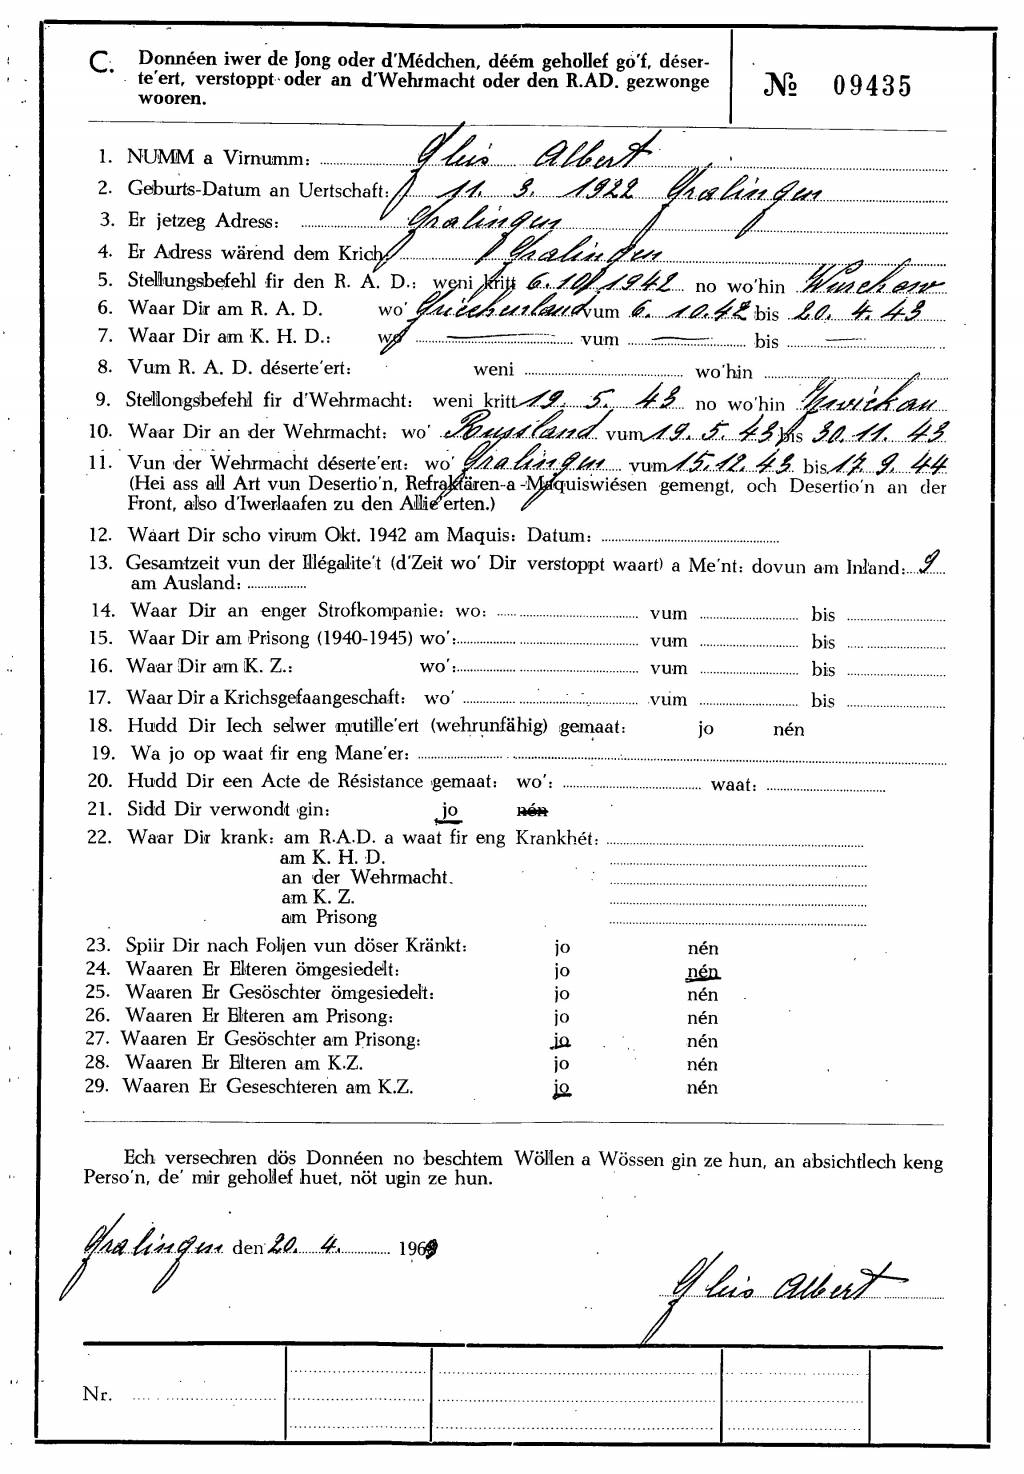 C. Donnéen iwer de Jong oder d'Médchen, déém gehollef go'f, déser-
te'ert, verstoppt oder an d'Wehrmacht oder den R.AD. gezwonge
wooren.
№ 09435
1. NUMM a Virnumm: Gleis Albert
2. Geburts-Datum an Uertschaft: 11. 3. 1922 Gralingen
3. Er jetzeg Adress: Gralingen
4. Er Adress wärend dem Krich: Gralingen
5. Stellungsbefehl fir den R. A. D.: weni kritt 6. 10. 1942 no wo'hin Wurchow
6. Waar Dir am R. A. D. wo' Griechenland vum 6. 10. 42 bis 20. 4. 43
7. Waar Dir am K. H. D.: wo' — vum — bis —
8. Vum R. A. D. déserte'ert: weni wo'hin
9. Stellongsbefehl fir d'Wehrmacht: weni kritt 19. 5. 43 no wo'hin Zwickau
10. Waar Dir an der Wehrmacht: wo' Russland vum 19. 5. 43 bis 30. 11. 43
11. Vun der Wehrmacht déserte'ert: wo' Gralingen vum 15. 12. 43 bis 17. 9. 44
(Hei ass all Art vun Desertio'n, Refraktären-a -Maquiswiésen gemengt, och Desertio'n an der
Front, also d'Iwerlaafen zu den Allie'erten.)
12. Waart Dir scho virum Okt. 1942 am Maquis: Datum:
13. Gesamtzeit vun der Illégalite't (d'Zeit wo' Dir verstoppt waart) a Me'nt: dovun am Inland: 9
am Ausland:
14. Waar Dir an enger Strofkompanie: wo: vum bis
15. Waar Dir am Prisong (1940-1945) wo': vum bis
16. Waar Dir am K. Z.: wo': vum bis
17. Waar Dir a Krichsgefaangeschaft: wo' vum bis
18. Hudd Dir Iech selwer mutille'ert (wehrunfähig) gemaat: jo nén
19. Wa jo op waat fir eng Mane'er:
20. Hudd Dir een Acte de Résistance gemaat: wo': waat:
21. Sidd Dir verwondt gin: jo nén
22. Waar Dir krank: am R.A.D. a waat fir eng Krankhét:
am K. H. D.
an der Wehrmacht.
am K. Z.
am Prisong
23. Spiir Dir nach Foljen vun döser Kränkt: jo nén
24. Waaren Er Elteren ömgesiedelt: jo nén
25. Waaren Er Gesöschter ömgesiedelt: jo nén
26. Waaren Er Elteren am Prisong: jo nén
27. Waaren Er Gesöschter am Prisong: jo nén
28. Waaren Er Elteren am K.Z. jo nén
29. Waaren Er Geseschteren am K.Z. jo nén
Ech versechren dös Donnéen no beschtem Wöllen a Wössen gin ze hun, an absichtlech keng
Perso'n, de' mir gehollef huet, nöt ugin ze hun.
Gralingen den 20. 4. 1969
Gleis Albert
Nr.